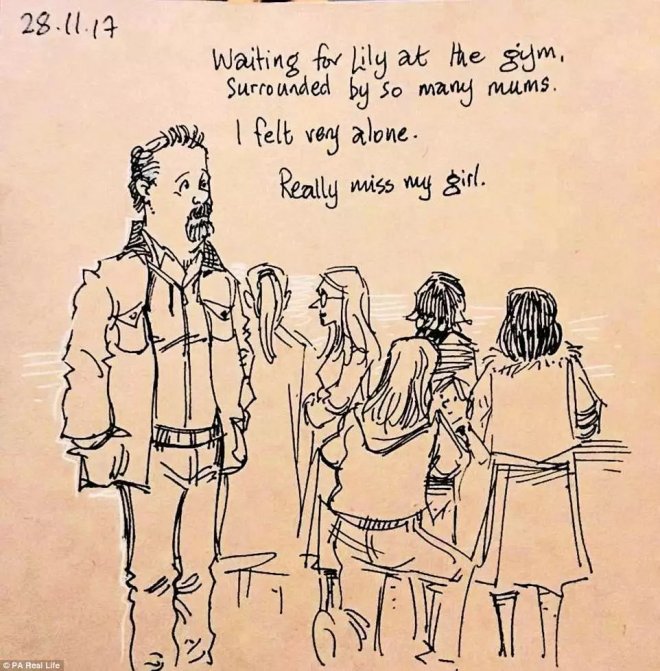 28.11.17
Waiting for Lily at the gym,
surrounded by so many mums.
I felt very alone.
Really miss my girl.
© PA Real Life